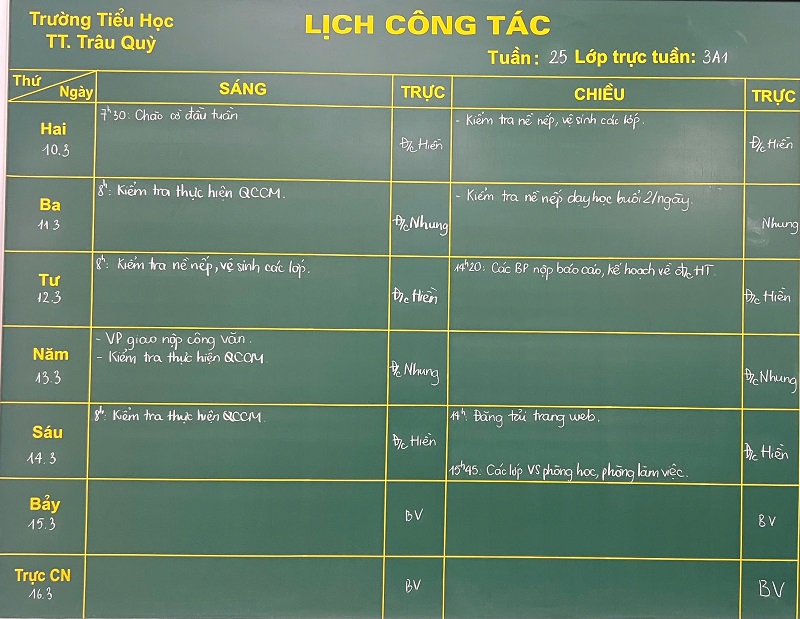 Trường Tiểu Học
TT. Trâu Quỳ
LỊCH CÔNG TÁC
Tuần: 25 Lớp trực tuần: 3A1
Thứ
Ngày
SÁNG
TRỰC
CHIỀU
TRỰC
Hai
10.3
7h30: Chào cờ đầu tuần
Đ/c Hiền
- Kiểm tra nề nếp, vệ sinh các lớp.
Đ/c Hiền
Ba
11.3
8h: Kiểm tra thực hiện QCCM.
Đ/c Nhung
- Kiểm tra nề nếp dạy học buổi 2/ngày.
Nhung
Tư
12.3
8h: Kiểm tra nề nếp, vệ sinh các lớp.
Đ/c Hiền
14h20: Các BP nộp báo cáo, kế hoạch về đ/c HT.
Đ/c Hiền
Năm
13.3
- VP giao nộp công văn.
- Kiểm tra thực hiện QCCM.
Đ/c Nhung
Đ/c Nhung
Sáu
14.3
8h: Kiểm tra thực hiện QCCM.
Đ/c Hiền
14h: Đăng tải trang web.
15h45: Các lớp VS phòng học, phòng làm việc.
Đ/c Hiền
Bảy
15.3
BV
BV
Trực CN
16.3
BV
BV